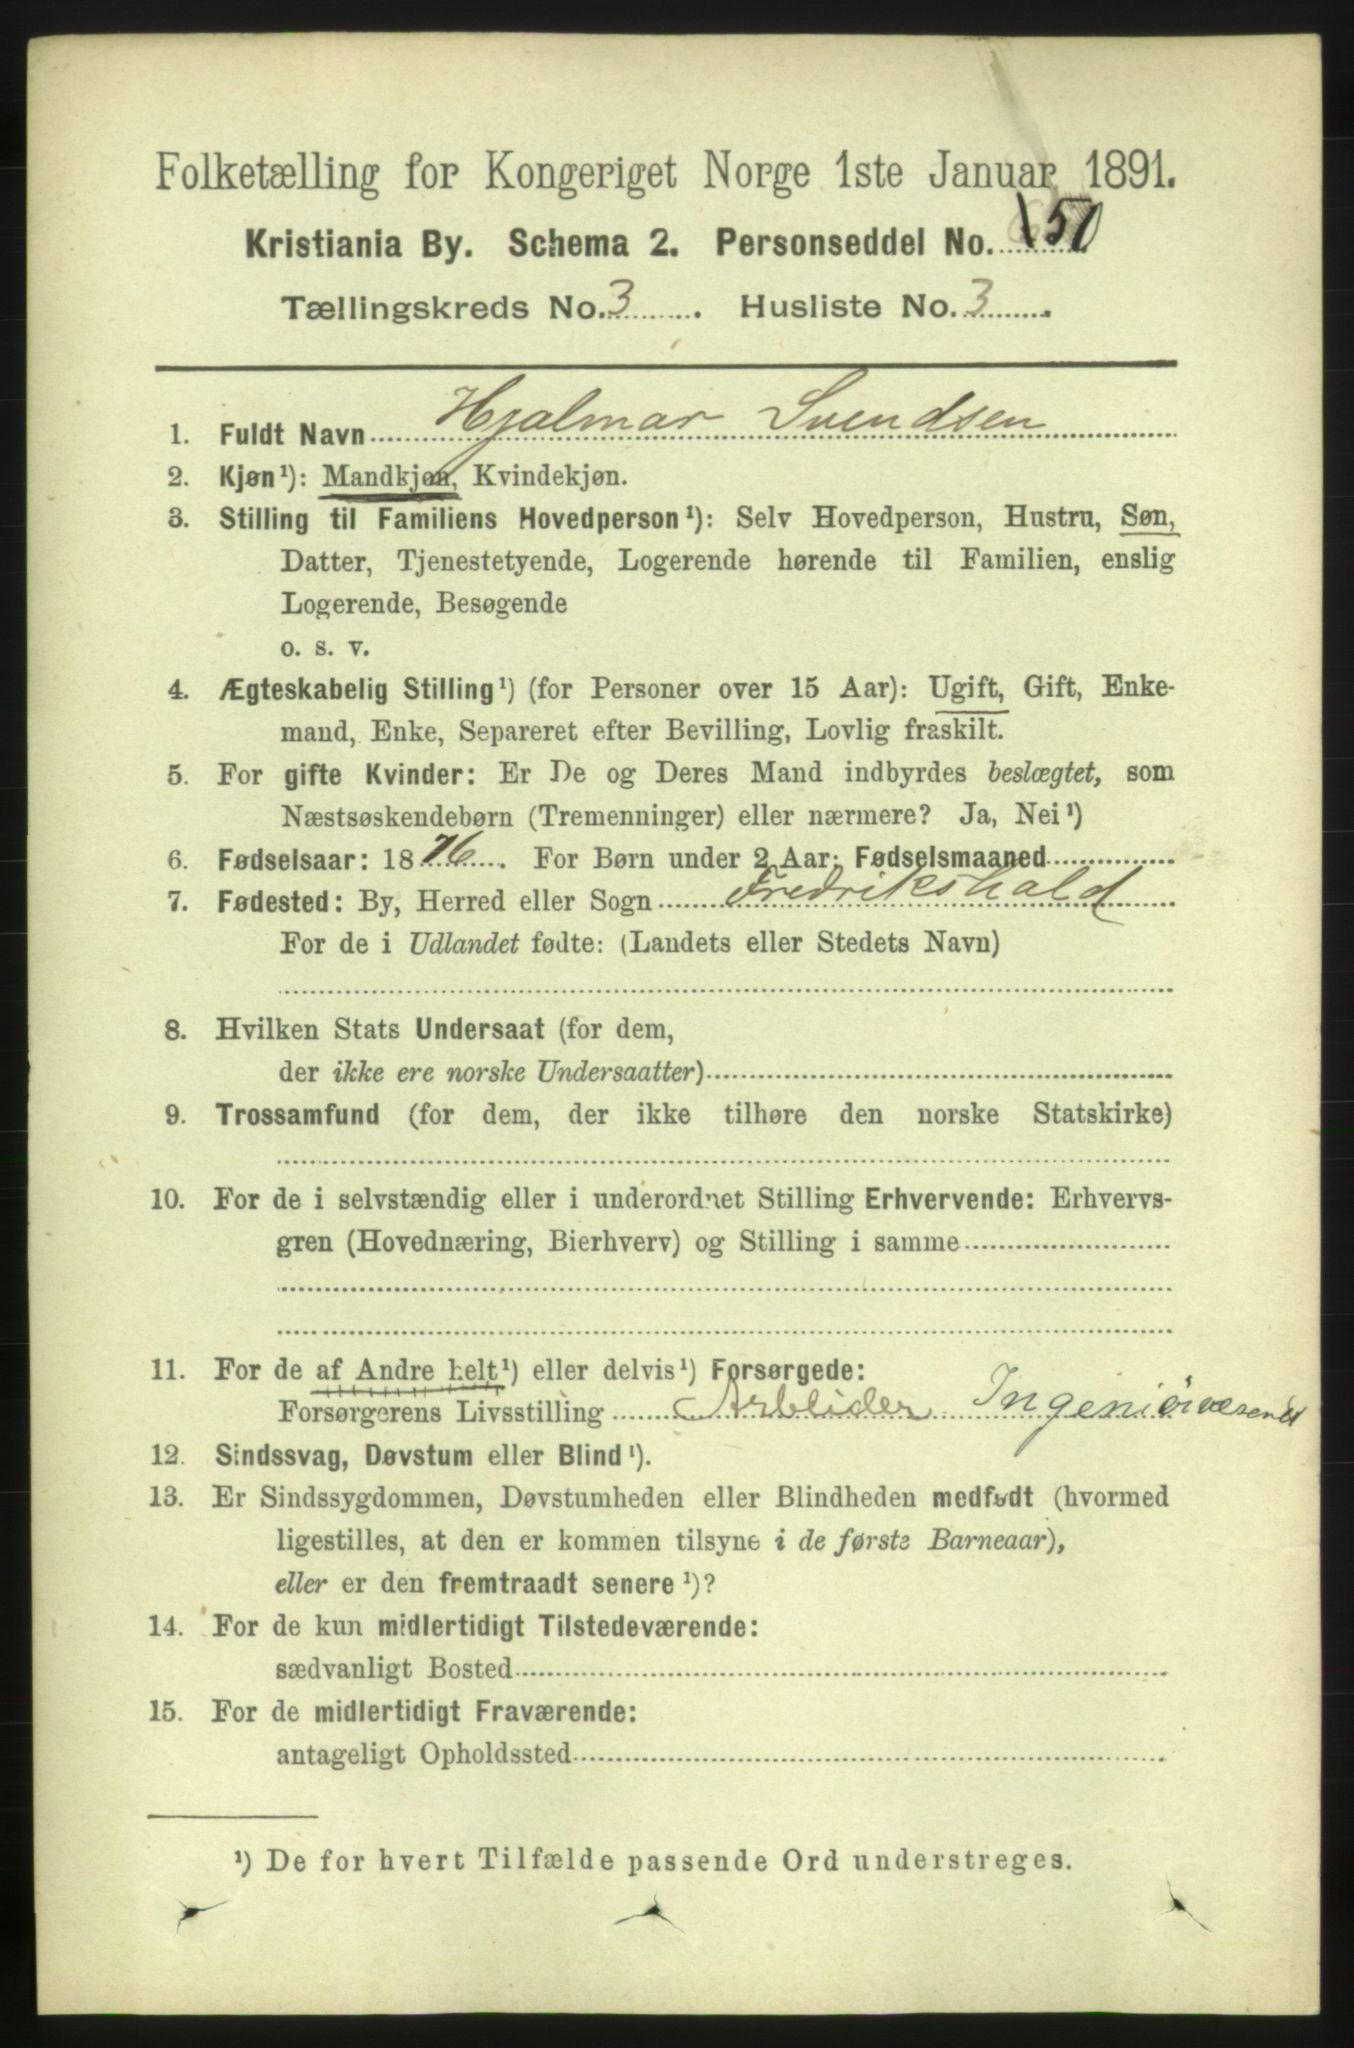 Folketælling for Kongeriget Norge 1ste Januar 1891.
Kristiania By. Schema 2. Personseddel No. 150
Tællingskreds No. 3. Husliste No. 3.
1. Fuldt Navn Hjalmar Svendsen
2. Kjøn¹): Mandkjøn, Kvindekjøn.
3. Stilling til Familiens Hovedperson¹): Selv Hovedperson, Hustru, Søn,
Datter, Tjenestetyende, Logerende hørende til Familien, enslig
Logerende, Besøgende
o. s. v.
4. Ægteskabelig Stilling¹) (for Personer over 15 Aar): Ugift, Gift, Enke-
mand, Enke, Separeret efter Bevilling, Lovlig fraskilt.
5. For gifte Kvinder: Er De og Deres Mand indbyrdes beslægtet, som
Næstsøskendebørn (Tremenninger) eller nærmere? Ja, Nei¹)
6. Fødselsaar: 1876. For Børn under 2 Aar: Fødselsmaaned
7. Fødested: By, Herred eller Sogn Fredrikshald
For de i Udlandet fødte: (Landets eller Stedets Navn)
8. Hvilken Stats Undersaat (for dem,
der ikke ere norske Undersaatter)
9. Trossamfund (for dem, der ikke tilhøre den norske Statskirke)
10. For de i selvstændig eller i underordnet Stilling Erhvervende: Erhvervs-
gren (Hovednæring, Bierhverv) og Stilling i samme
11. For de af Andre helt¹) eller delvis¹) Forsørgede:
Forsørgerens Livsstilling Arbeider Ingeniörvæsenet
12. Sindssvag, Døvstum eller Blind¹).
13. Er Sindssygdommen, Døvstumheden eller Blindheden medfødt (hvormed
ligestilles, at den er kommen tilsyne i de første Barneaar),
eller er den fremtraadt senere¹)?
14. For de kun midlertidigt Tilstedeværende:
sædvanligt Bosted
15. For de midlertidigt Fraværende:
antageligt Opholdssted
¹) De for hvert Tilfælde passende Ord understreges.